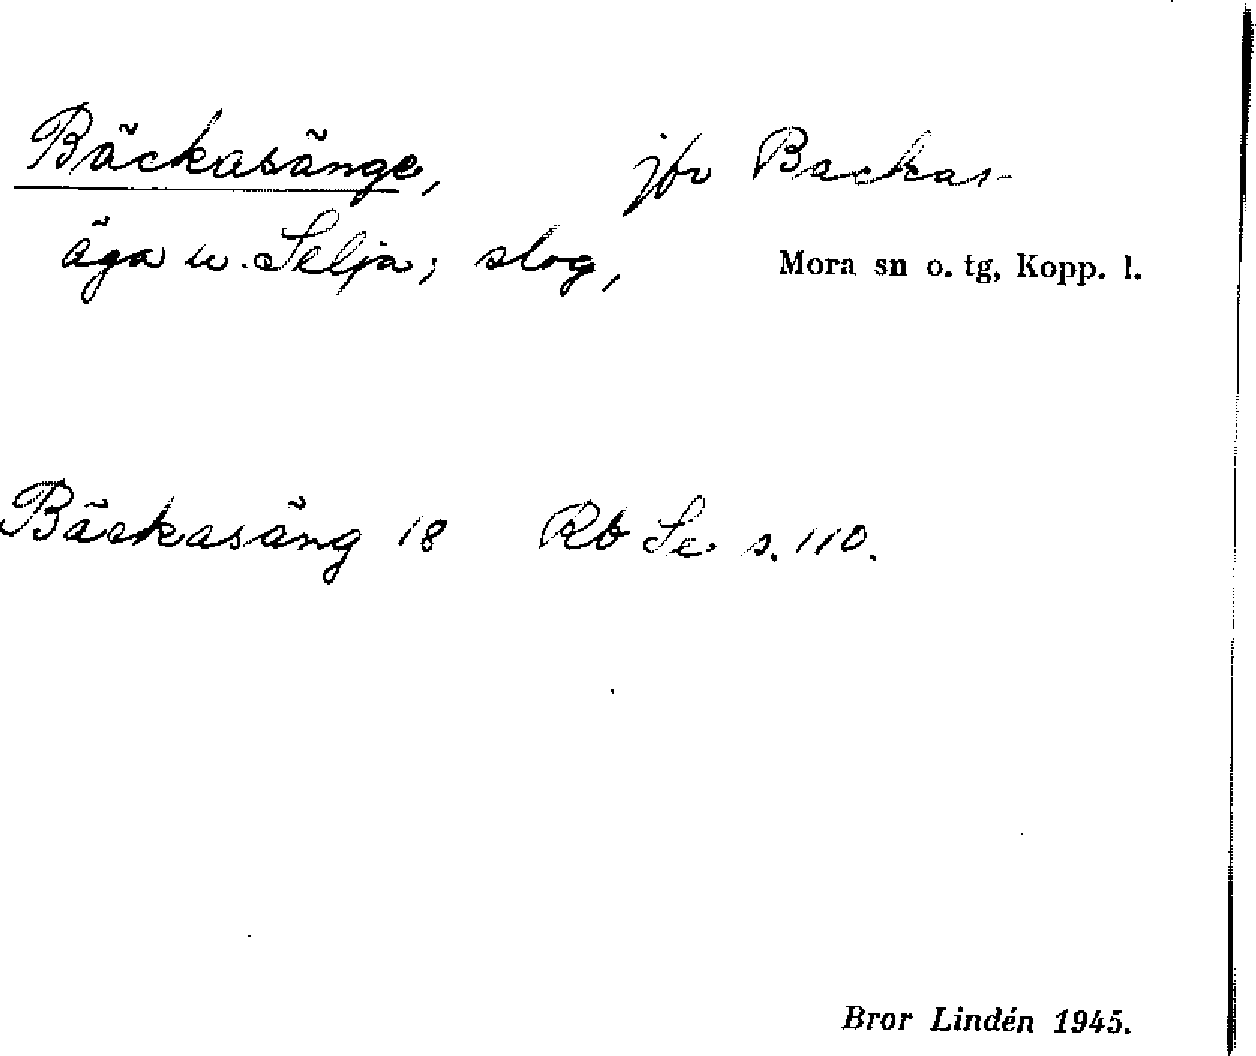 Bäckasänge, jfr Backas-
äga u. Selja; slog, Mora sn o. tg, Kopp. l.
Bäckasäng 18 Rb Se s. 110.
Bror Lindén 1945.